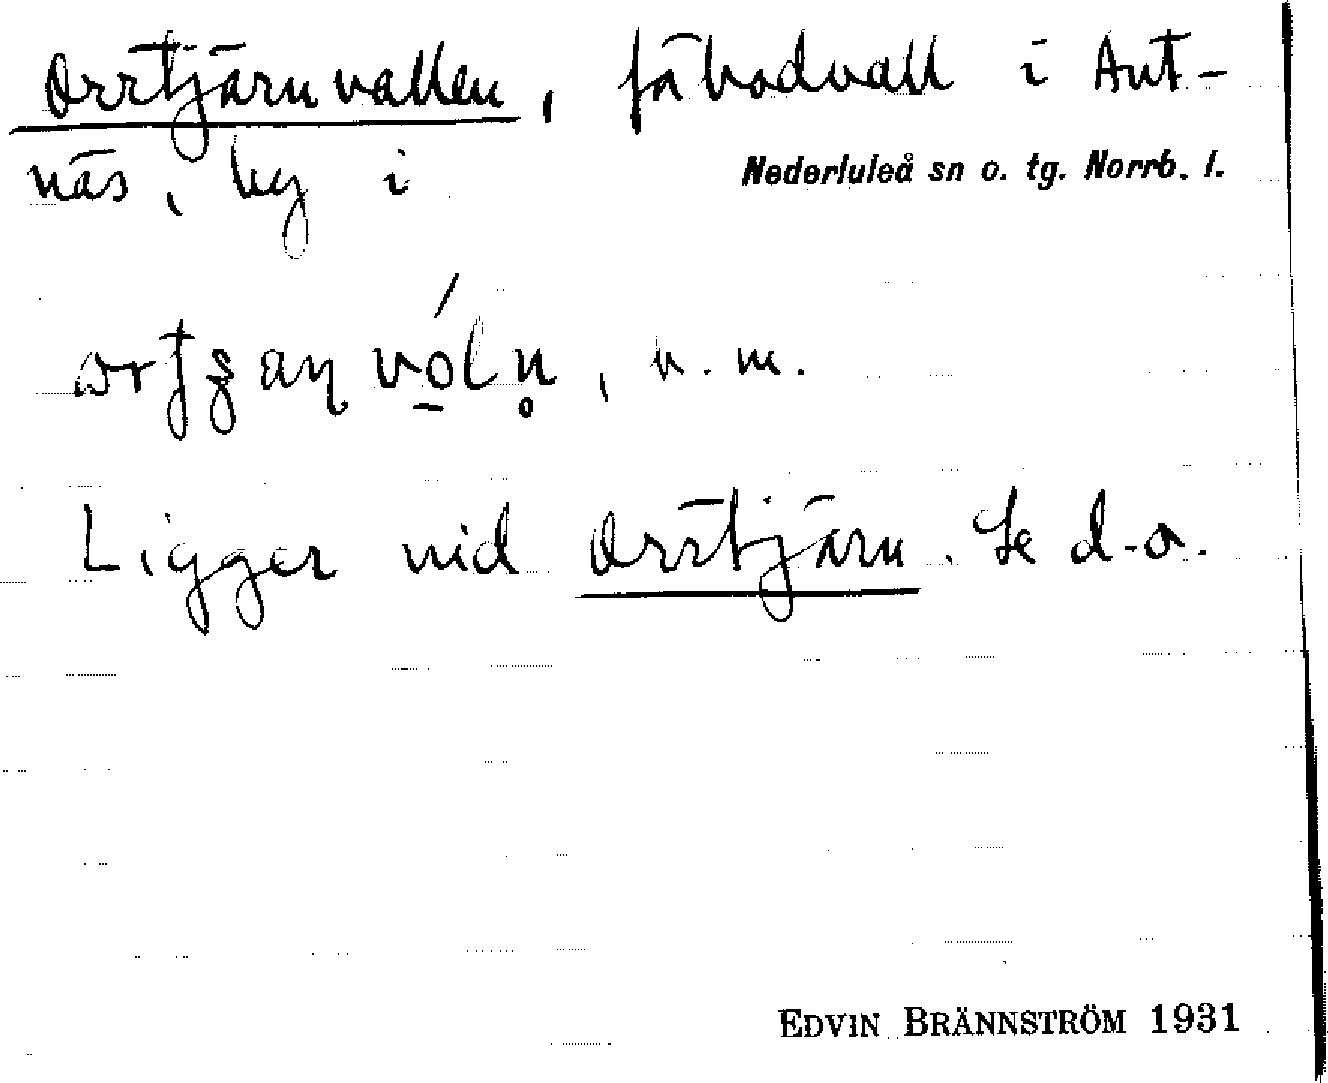 Orrtjärnvallen, fäbodvall i Ant-
näs, by i Nederluleå sn o. tg. Norrb. l.
n. m.
Ligger vid Orrtjärn. Se d. o.
EDVIN BRÄNNSTRÖM 1931